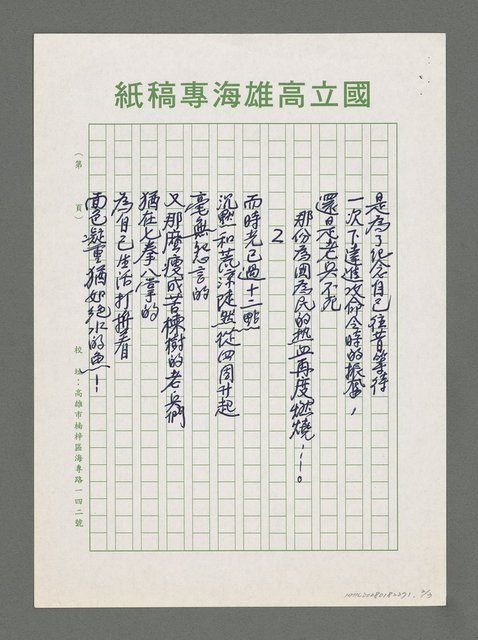 國立高雄海專專稿紙
是為了紀念自己往昔等待
一次下達進攻命令時的振奮，
還是老兵不死
那份為國為民的热血再度燃燒……。
2
而時光已過十二點
沉默和荒涼陡然從四周升起
毫無怨言的
又那麼瘦成苦楝樹的老兵們
猶在七拳八掌的
為自己生活打拼着
面色凝重猶如絕水的魚……
（第　頁）
校　址：高雄市楠梓區海專路一四二號
2/3